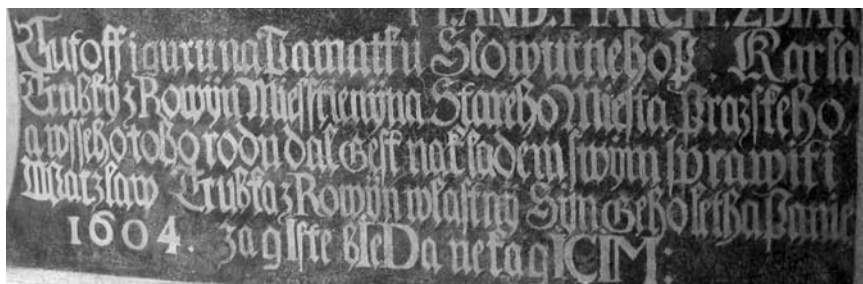 M. AND. MARCH. ZDIAR
Tuto ffiguru na Pamatku Slowutneho P. Karla
Trussky z Rowyn Miesstienyna Stareho Miesta Prazskeho,
a wsseho toho rodu dal Gest nakladem swym sprawiti
Warzlaw Trusska z Rowyn wlastny Syn Geho letha Panie
1604. za gIste bIeDa nekagICIM: